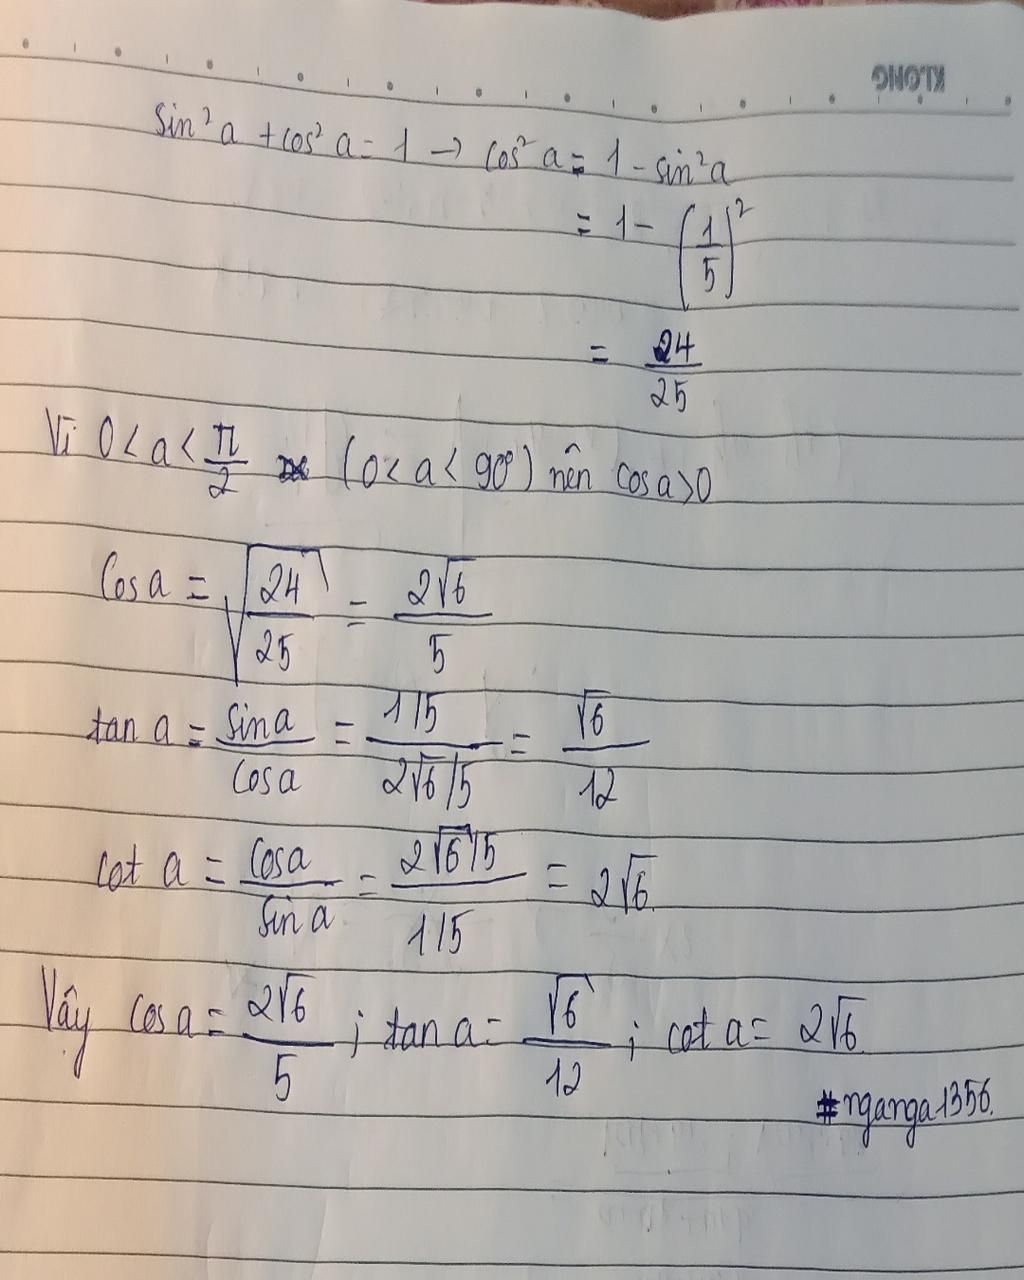 KLONG
sin²a + cos²a = 1 → cos²a = 1 - sin²a
= 1 - (1/5)²
= 24/25
Vì 0 < a < π/2 (0 < a < 90°) nên cos a > 0
Cos a = √(24/25) = 2√6/5
tan a = sin a/cos a = (1/5)/(2√6/5) = √6/12
cot a = cos a/sin a = (2√6/5)/(1/5) = 2√6.
Vậy cos a = 2√6/5 ; tan a = √6/12 ; cot a = 2√6.
#nganga1356.